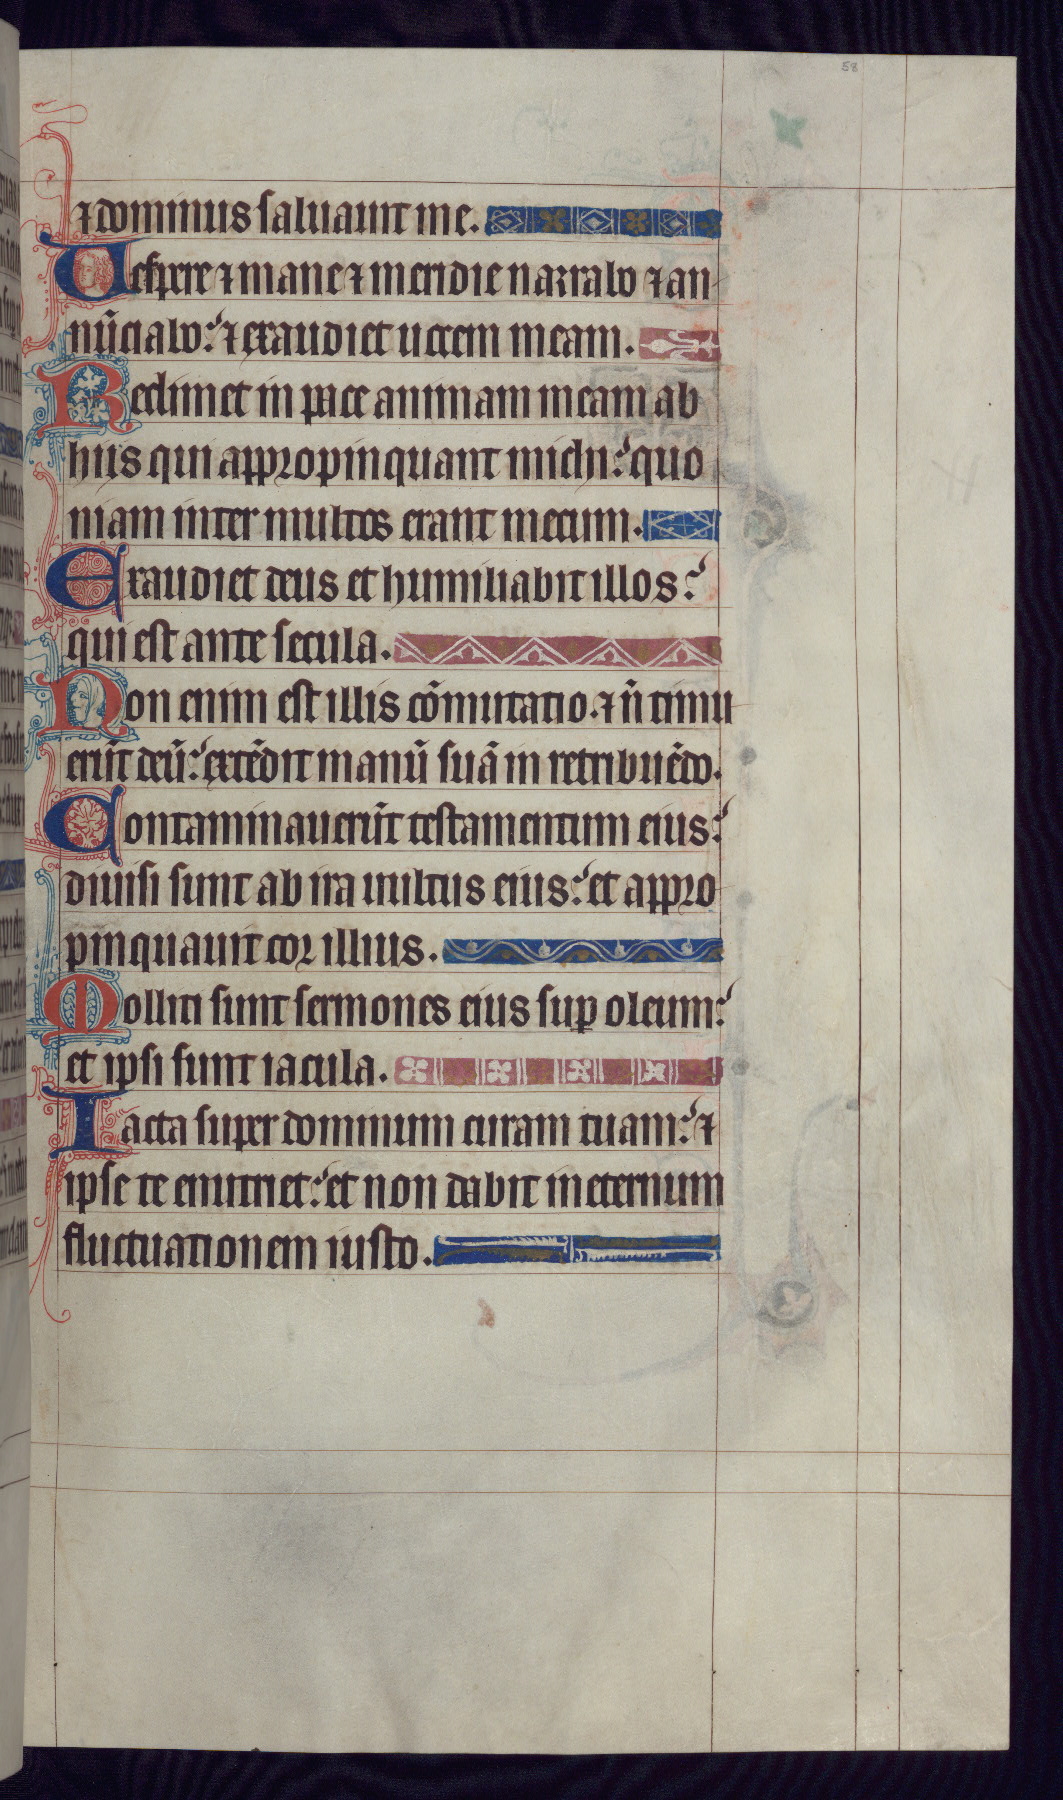 58
⁊ dominus saluauit me.
Uespere ⁊ mane ⁊ meridie narrabo ⁊ an
nũciabo: ⁊ exaudiet uocem meam.
Redimet in pace animam meam ab
hiis qui appropinquant michi: quo
niam inter multos erant mecum.
Exaudiet deus et humiliabit illos:
qui est ante secula.
Non enim est illis cõmutatio. ⁊ ñ timu
erũt deũ: extẽdit manũ suã in retribuẽdo.
Contaminauerũt testamentum eius:
diuisi sunt ab ira uultus eius: et appro
pinquauit cor illius.
Molliti sunt sermones eius suꝑ oleum:
et ipsi sunt iacula.
Iacta super dominum curam tuam: ⁊
ipse te enutriet: et non dabit in eternum
fluctuationem iusto.